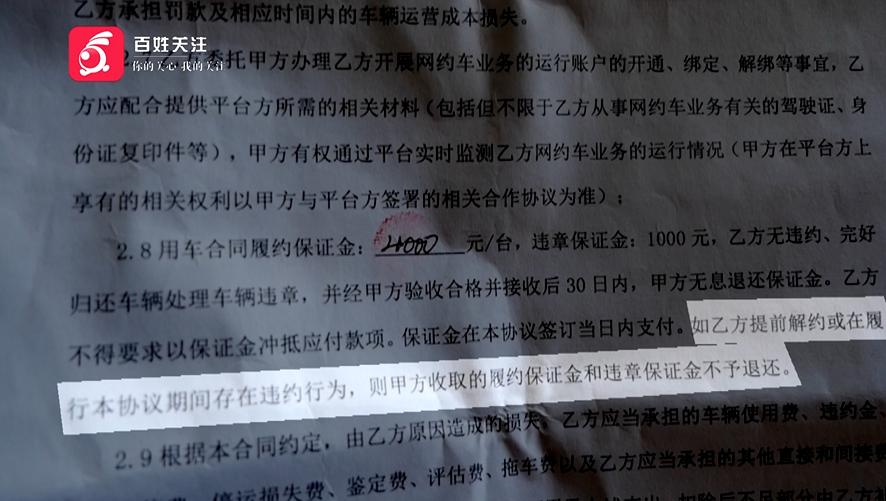 乙方承担罚款及相应时间内的车辆运营成本损失。
百姓关注
你的关心·我的关注
托甲方办理乙方开展网约车业务的运行账户的开通、绑定、解绑等事宜，乙
方应配合提供平台方所需的相关材料（包括但不限于乙方从事网约车业务有关的驾驶证、身
份证复印件等），甲方有权通过平台实时监测乙方网约车业务的运行情况（甲方在平台方上
享有的相关权利以甲方与平台方签署的相关合作协议为准）；
2.8 用车合同履约保证金：4000 元/台，违章保证金：1000 元，乙方无违约、完好
归还车辆处理车辆违章，并经甲方验收合格并接收后 30 日内，甲方无息退还保证金。乙方
不得要求以保证金冲抵应付款项。保证金在本协议签订当日内支付。如乙方提前解约或在履
行本协议期间存在违约行为，则甲方收取的履约保证金和违章保证金不予退还。
2.9 根据本合同约定，由乙方原因造成的损失，乙方应当承担的车辆使用费、违约金、
停运损失费、鉴定费、评估费、拖车费以及乙方应当承担的其他直接和间接费